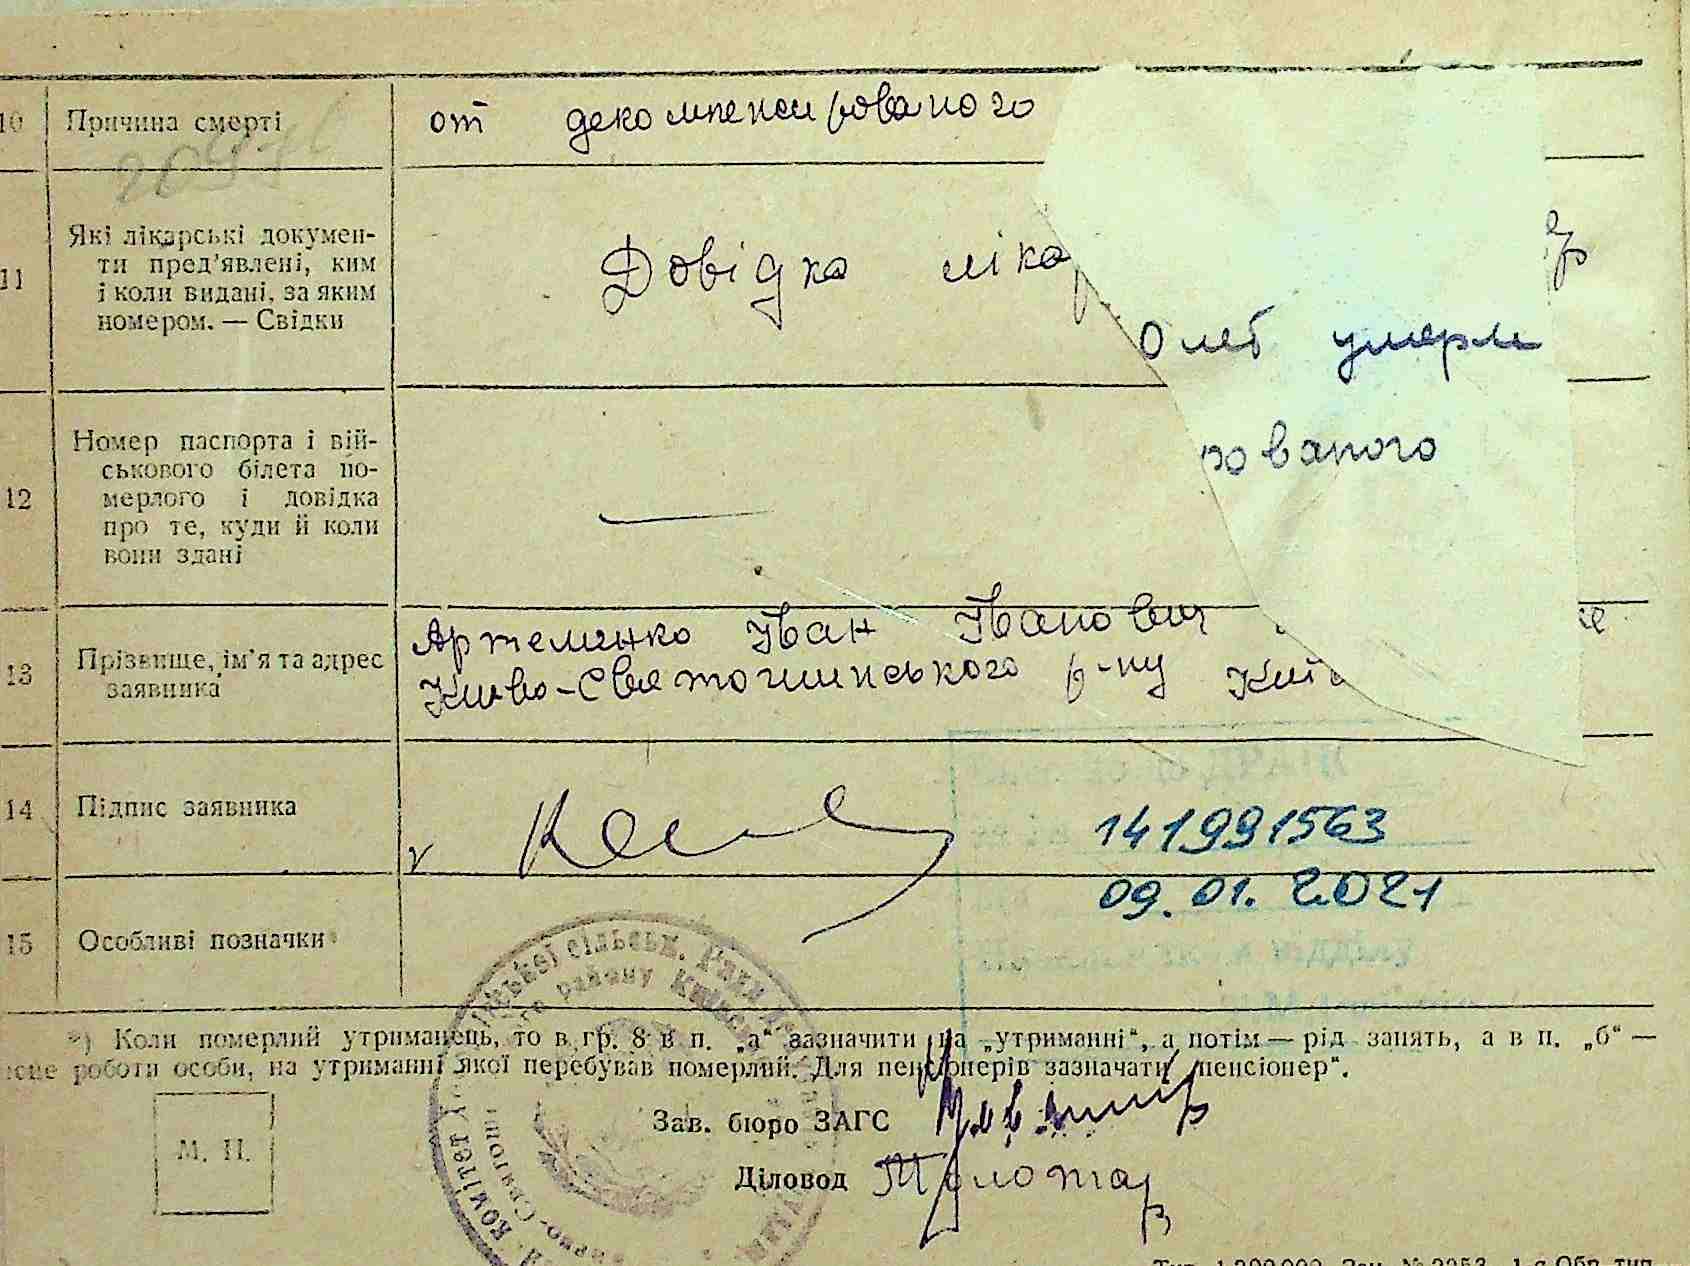 10 Причина смерті от декомпенсированого
11 Які лікарські докумен-
ти пред'явлені, ким
і коли видані, за яким
номером. — Свідки
Довідка ліка
умерли
ованого
12 Номер паспорта і вій-
ськового білета по-
мерлого і довідка
про те, куди й коли
вони здані
—
13 Прізвище, ім'я та адрес
заявника
Артеменко Іван Іванович
Києво-Святошинського р-ну
14 Підпис заявника
141991563
09.01.2021
15 Особливі позначки
*) Коли померлий утриманець, то в гр. 8 в п. „а“ зазначити на „утриманні“, а потім — рід занять, а в п. „б“ —
роботи особи, на утриманні якої перебував померлий. Для пенсіонерів зазначати „пенсіонер“.
Зав. бюро ЗАГС
М. П.
Діловод